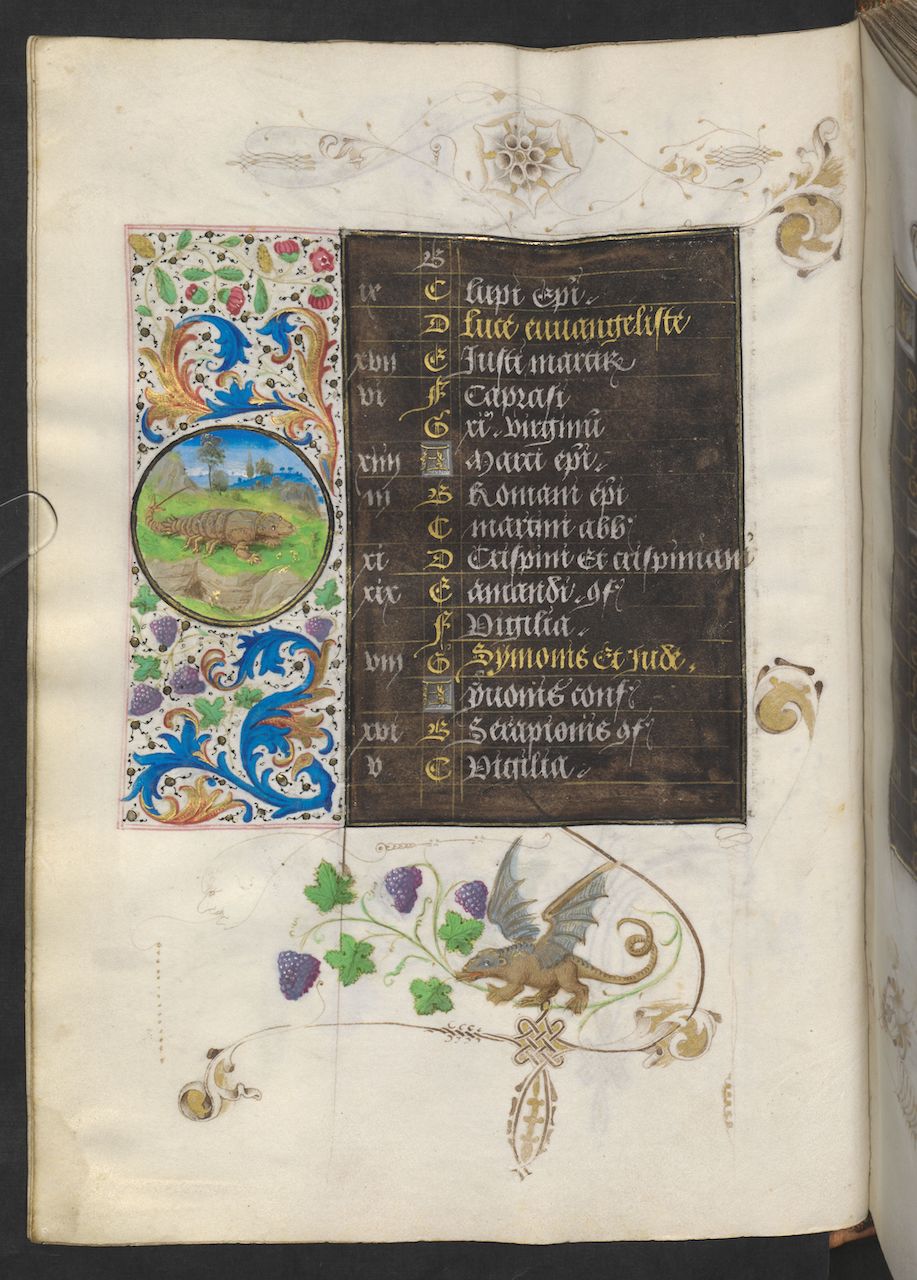 B
ix C lupi epi.
D luce euuangeliste
xvii E Iusti martir
vi F Caprasi
G xi. virginu
xiiii A Marci epi.
iii B Romani epi
C martini abb
xi D Crispini et crispiniani
xix E amandi. gf
F Vigilia.
viii G Symonis et Iude.
A yuonis conf
xvi B Serapionis gf
v C Vigilia.